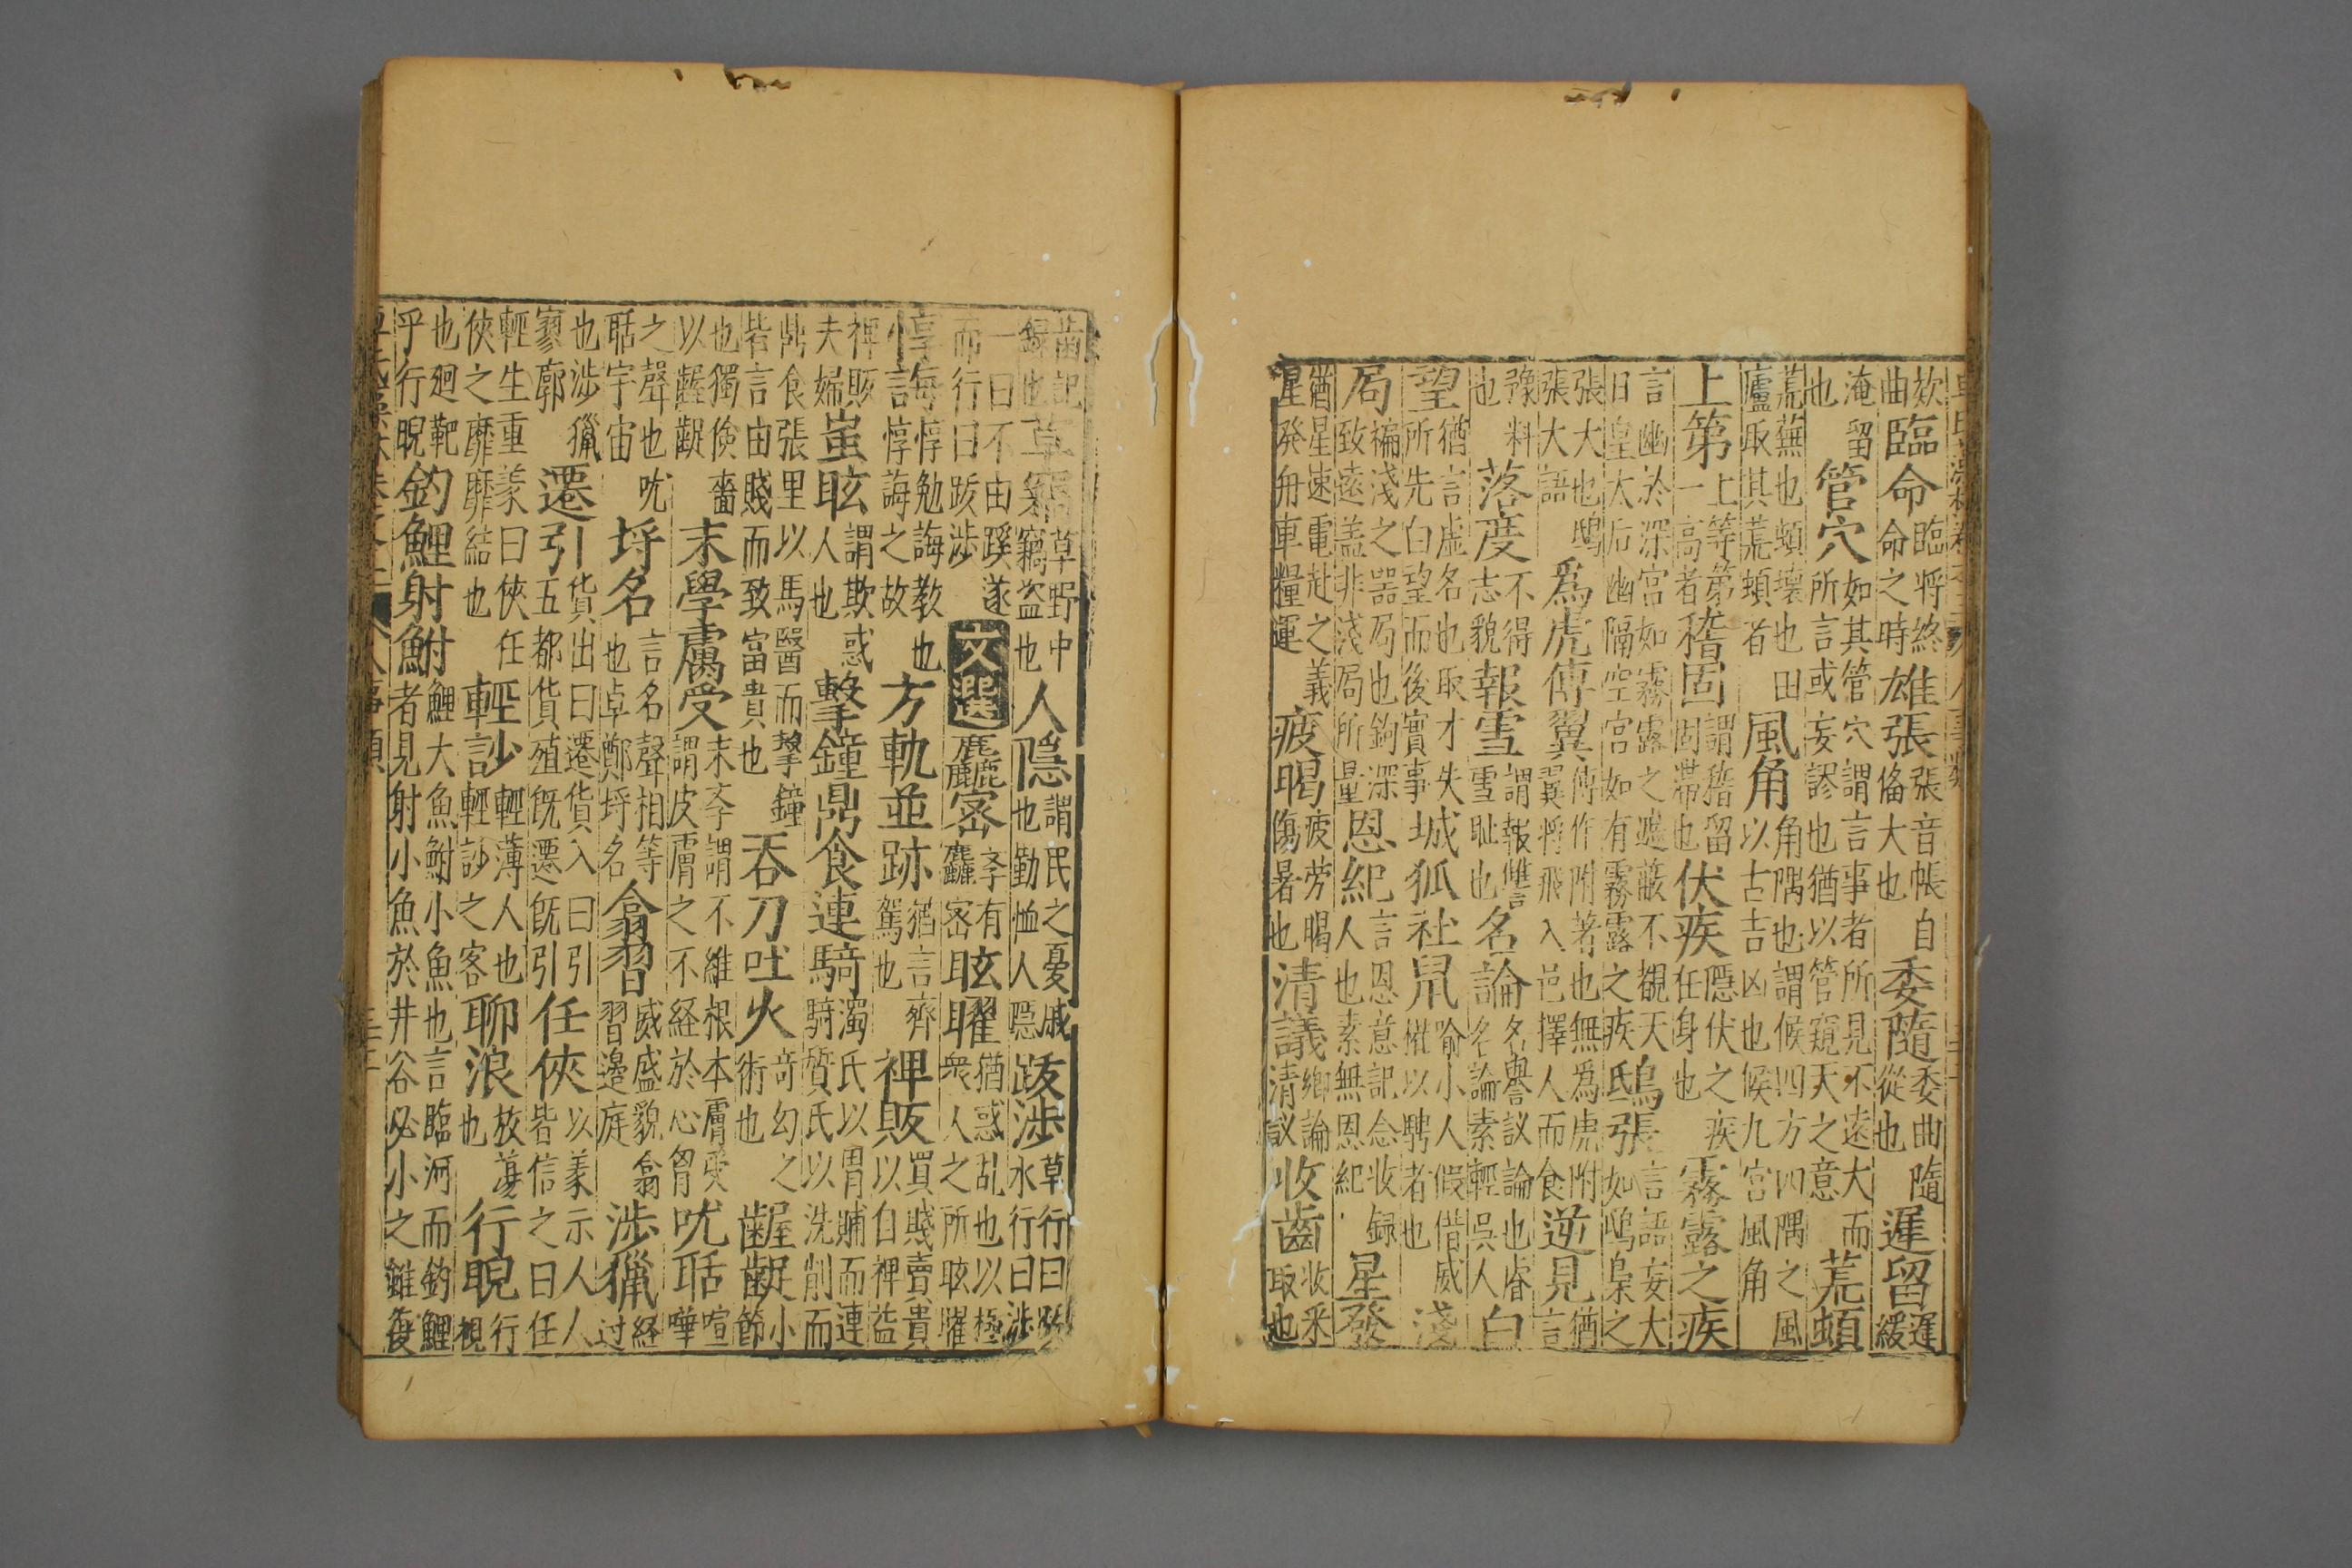 欬曲臨命臨將終命之時雄張張音帳自俻大也委隨委曲隨從也遲留遲緩
淹留也管穴如其管穴謂言事者所見不遠大而所言或妄謬也猶以管窺天之意荒蝢
荒蕪也蝢壞也田廬取其荒蝢者風角角隅也謂候四方四隅之風以古吉凶也候九宮風角
上第上等第一高者稽固謂稽留固滯也伏疾隱伏之疾任身也霧露之疾
言幽於深宮如霧露之遮蔽不覩天日皇太后幽隔空宮如有霧露之疾鴟張言語妄大如鴟梟之
張大也鴟張大語爲虎傅翼傅作附著也無爲虎附翼將飛入邑擇人而食逆見猶言
豫料也落度不得志貌報雪謂報讐雪耻也名論名譽議論也睿名論素輕吳人白
望猶言虛名也取才失所先白望而後實事城狐社鼠喻小人假借威權以騁者也淺
局褊淺之器局也鉤深致遠盖非淺局所量恩紀言恩意記念收録人也素無恩紀星發
猶星速電赴之義星發舟車糧運疲暍疲勞暍傷暑也清議鄉論清議收齒收釆取也
齒記録也草竊草野中竊盜也人隱謂民之憂戚也勤恤人隱跋涉草行曰跋水行曰涉
一曰不由蹊遂而行曰跋涉文選麤密字有麤密眩曜猶惑乱也以極衆人之所眩曜
惇誨惇勉誨教也言惇誨之故方軌並跡猶言齊駕也裨販買賤賣貴以自裨益
裨販夫婦蚩眩謂欺惑人也擊鐘鼎食連騎濁氏以胃脯而連騎質氏以洗削而
鼎食張里以馬醫而擊鐘皆言由賤而致富貴也吞刀吐火奇幻之術也齷齪小節
也獨儉嗇以齷齪末學膚受末孛謂不維根本膚受謂皮膚之不経於心胷吠聒喧嘩
之聲也吠聒宇宙埒名言名聲相等也卓鄭埒名翕習威盛貌翕習邊庭涉獵経过
也涉獵寥廓遷引貨出曰遷貨入曰引五都貨殖旣遷旣引任俠以义示人人皆信之曰任
輕生重义曰俠任俠之靡靡結也輕訬輕薄人也輕訬之客聊浪放蕩也行睨行視
也廻靶乎行睨釣鯉射鮒鯉大魚鮒小魚也言臨河而釣鯉者見射小魚於井谷必小之雖復